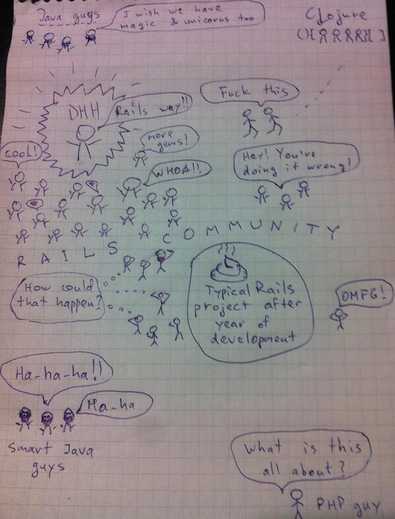 Java guys
I wish we have
magic & unicorns too
Clojure
DHH
Rails way!!
Fuck this
more
gems!
COOL!
WHOA!!
Hey! You're
doing it wrong!
RAILS COMMUNITY
How could
that happen?
Typical Rails
project after
year of
development
OMFG!
Ha-ha-ha!!
Ha-ha
Smart Java
guys
What is this
all about?
PHP guy